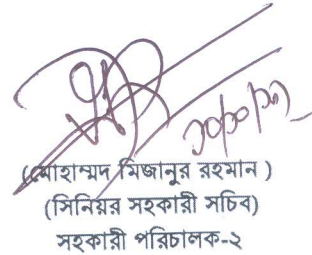 (মোহাম্মদ মিজানুর রহমান )
(সিনিয়র সহকারী সচিব)
সহকারী পরিচালক-২